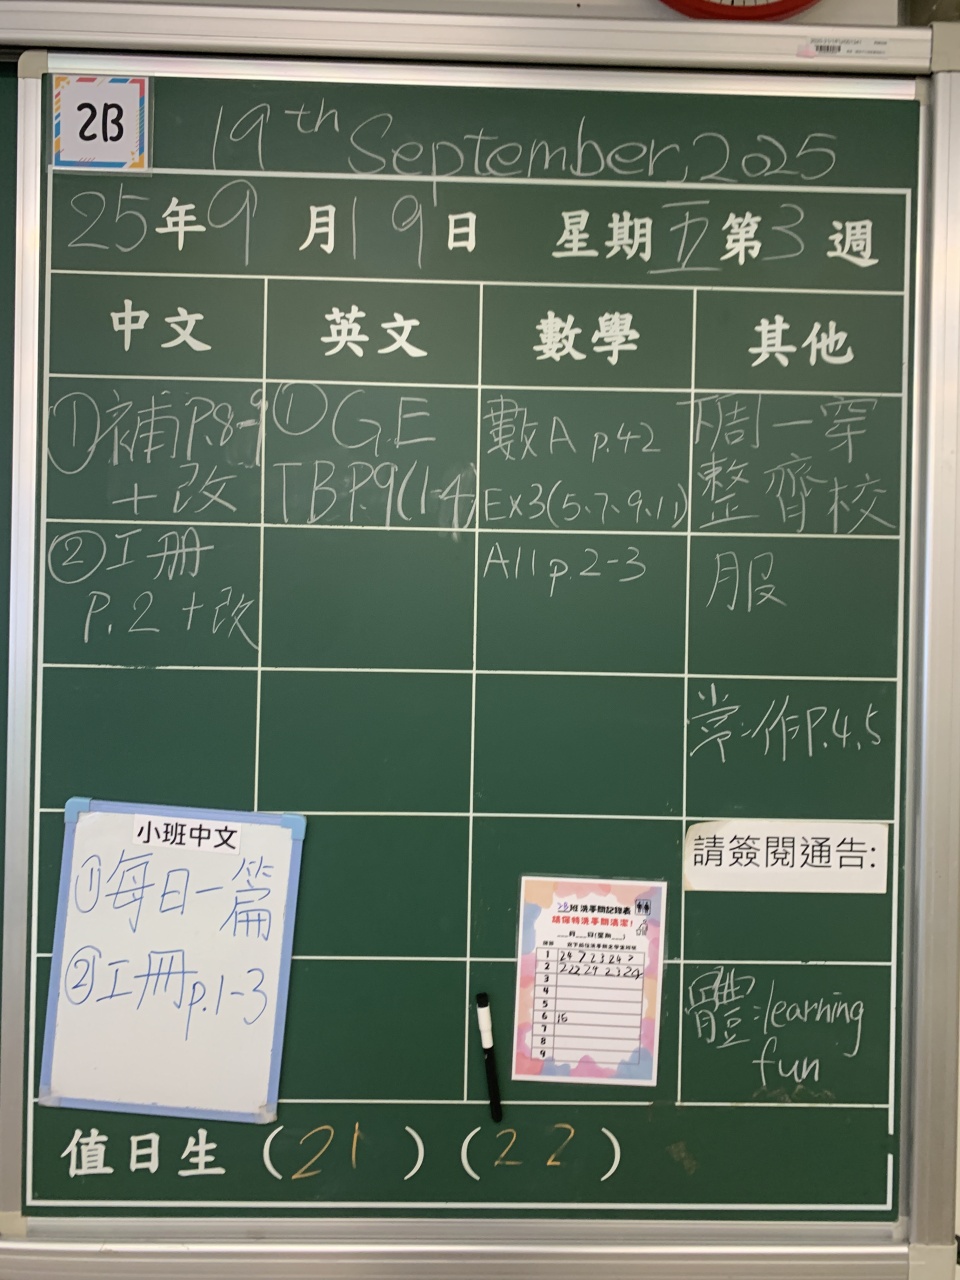 2B
19th September, 2025
25年9月19日 星期五第3週
中文 英文 數學 其他
①補P.8-9
+改
②工册
P.2+改
①G.E
TBP.9(1-4)
數A p.42
Ex3(5.7.9.11)
A11 p.2-3
周一穿
整齊校
服
常:作P.4,5
小班中文
①每日一篇
②工冊p.1-3
請簽閱通告:
2B班洗手間記錄表
請保持洗手間清潔!
___月___日(星期___)
1 24 7 23 24 7
2 22 24 23 24
3
4
5
6 15
7
8
9
體:learning
fun
值日生 (21) (22)